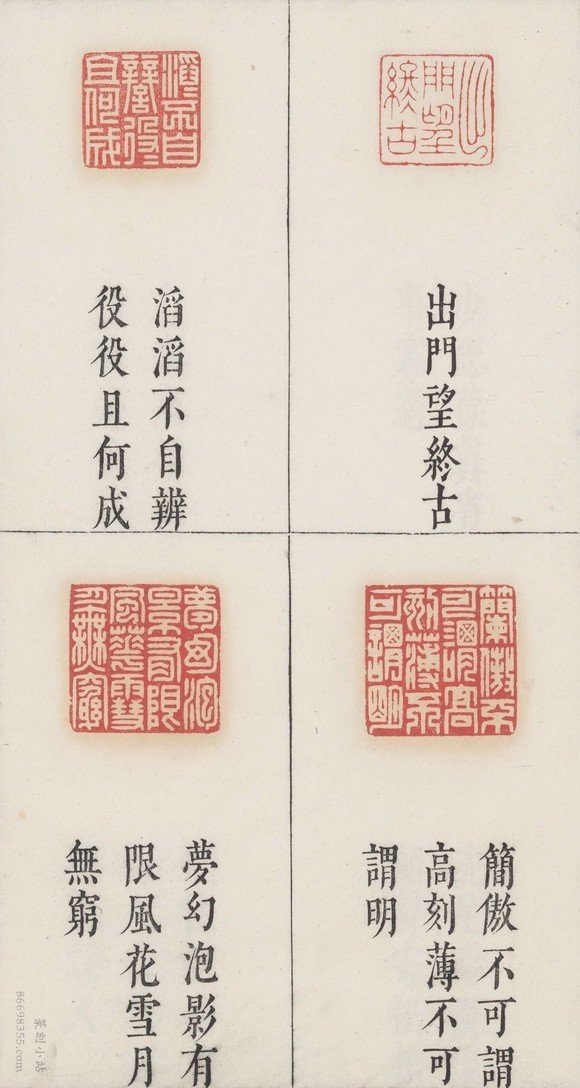 出門望終古
滔滔不自辨
役役且何成
簡傲不可謂
高刻薄不可
謂明
夢幻泡影有
限風花雪月
無窮
篆刻小站
86698355.com